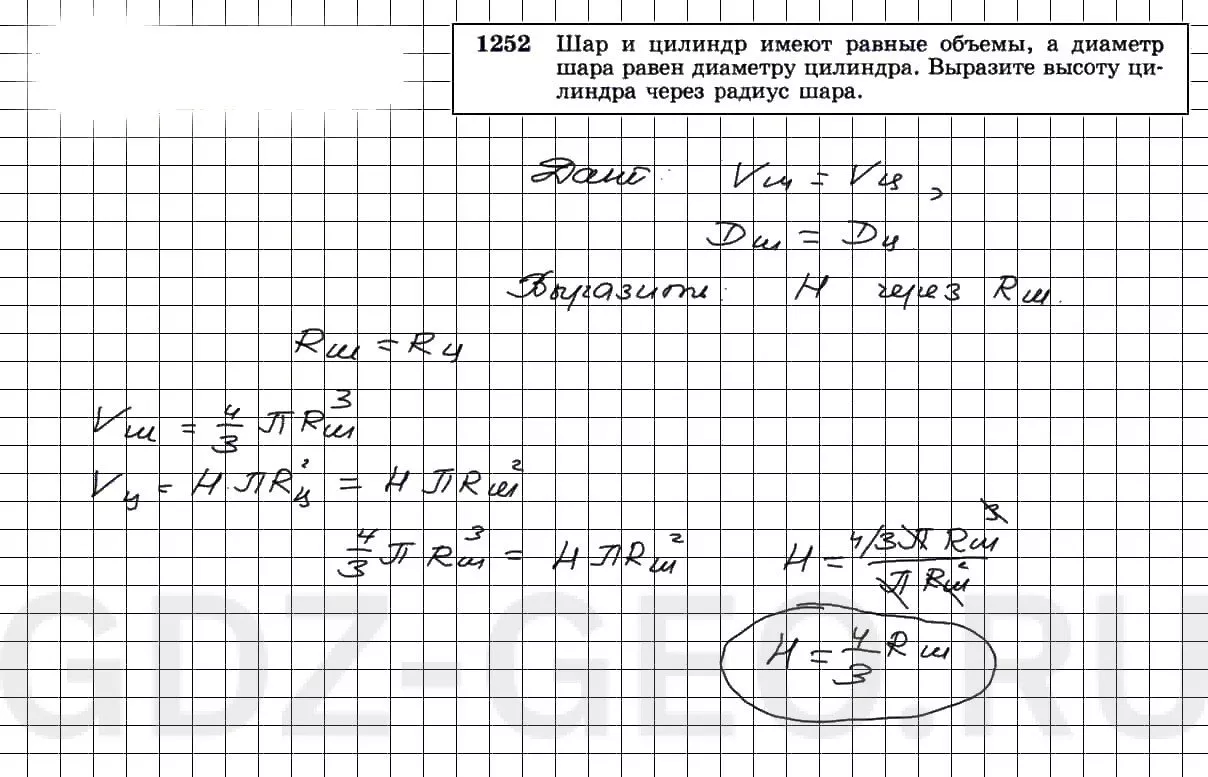 1252 Шар и цилиндр имеют равные объемы, а диаметр
шара равен диаметру цилиндра. Выразите высоту ци-
линдра через радиус шара.
Дано: Vш = Vц,
Dш = Dц
Выразить: H через Rш.
Rш = Rц
Vш = 4/3 π Rш³
Vц = H · πRц² = H πRш²
4/3 π Rш³ = H πRш² H = 4/3 π Rш³ / π Rш²
H = 4/3 Rш
GDZ-GEO.RU